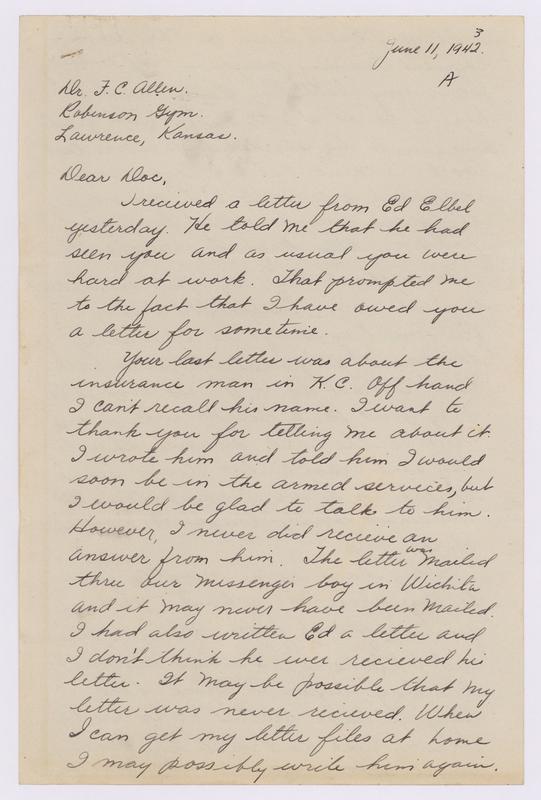 3
June 11, 1942.
A
Dr. F. C. Allen.
Robinson Gym.
Lawrence, Kansas.
Dear Doc,
I recieved a letter from Ed Elbel
yesterday. He told me that he had
seen you and as usual you were
hard at work. That prompted me
to the fact that I have owed you
a letter for sometime.
Your last letter was about the
insurance man in K.C. Off hand
I can't recall his name. I want to
thank you for telling me about it.
I wrote him and told him I would
soon be in the armed serveices, but
I would be glad to talk to him.
However, I never did recieve an
answer from him. The letter was mailed
thru our messenger boy in Wichita
and it may never have been mailed.
I had also written Ed a letter and
I don't think he ever recieved his
letter. It may be possible that my
letter was never recieved. When
I can get my letter files at home
I may possibly write him again.